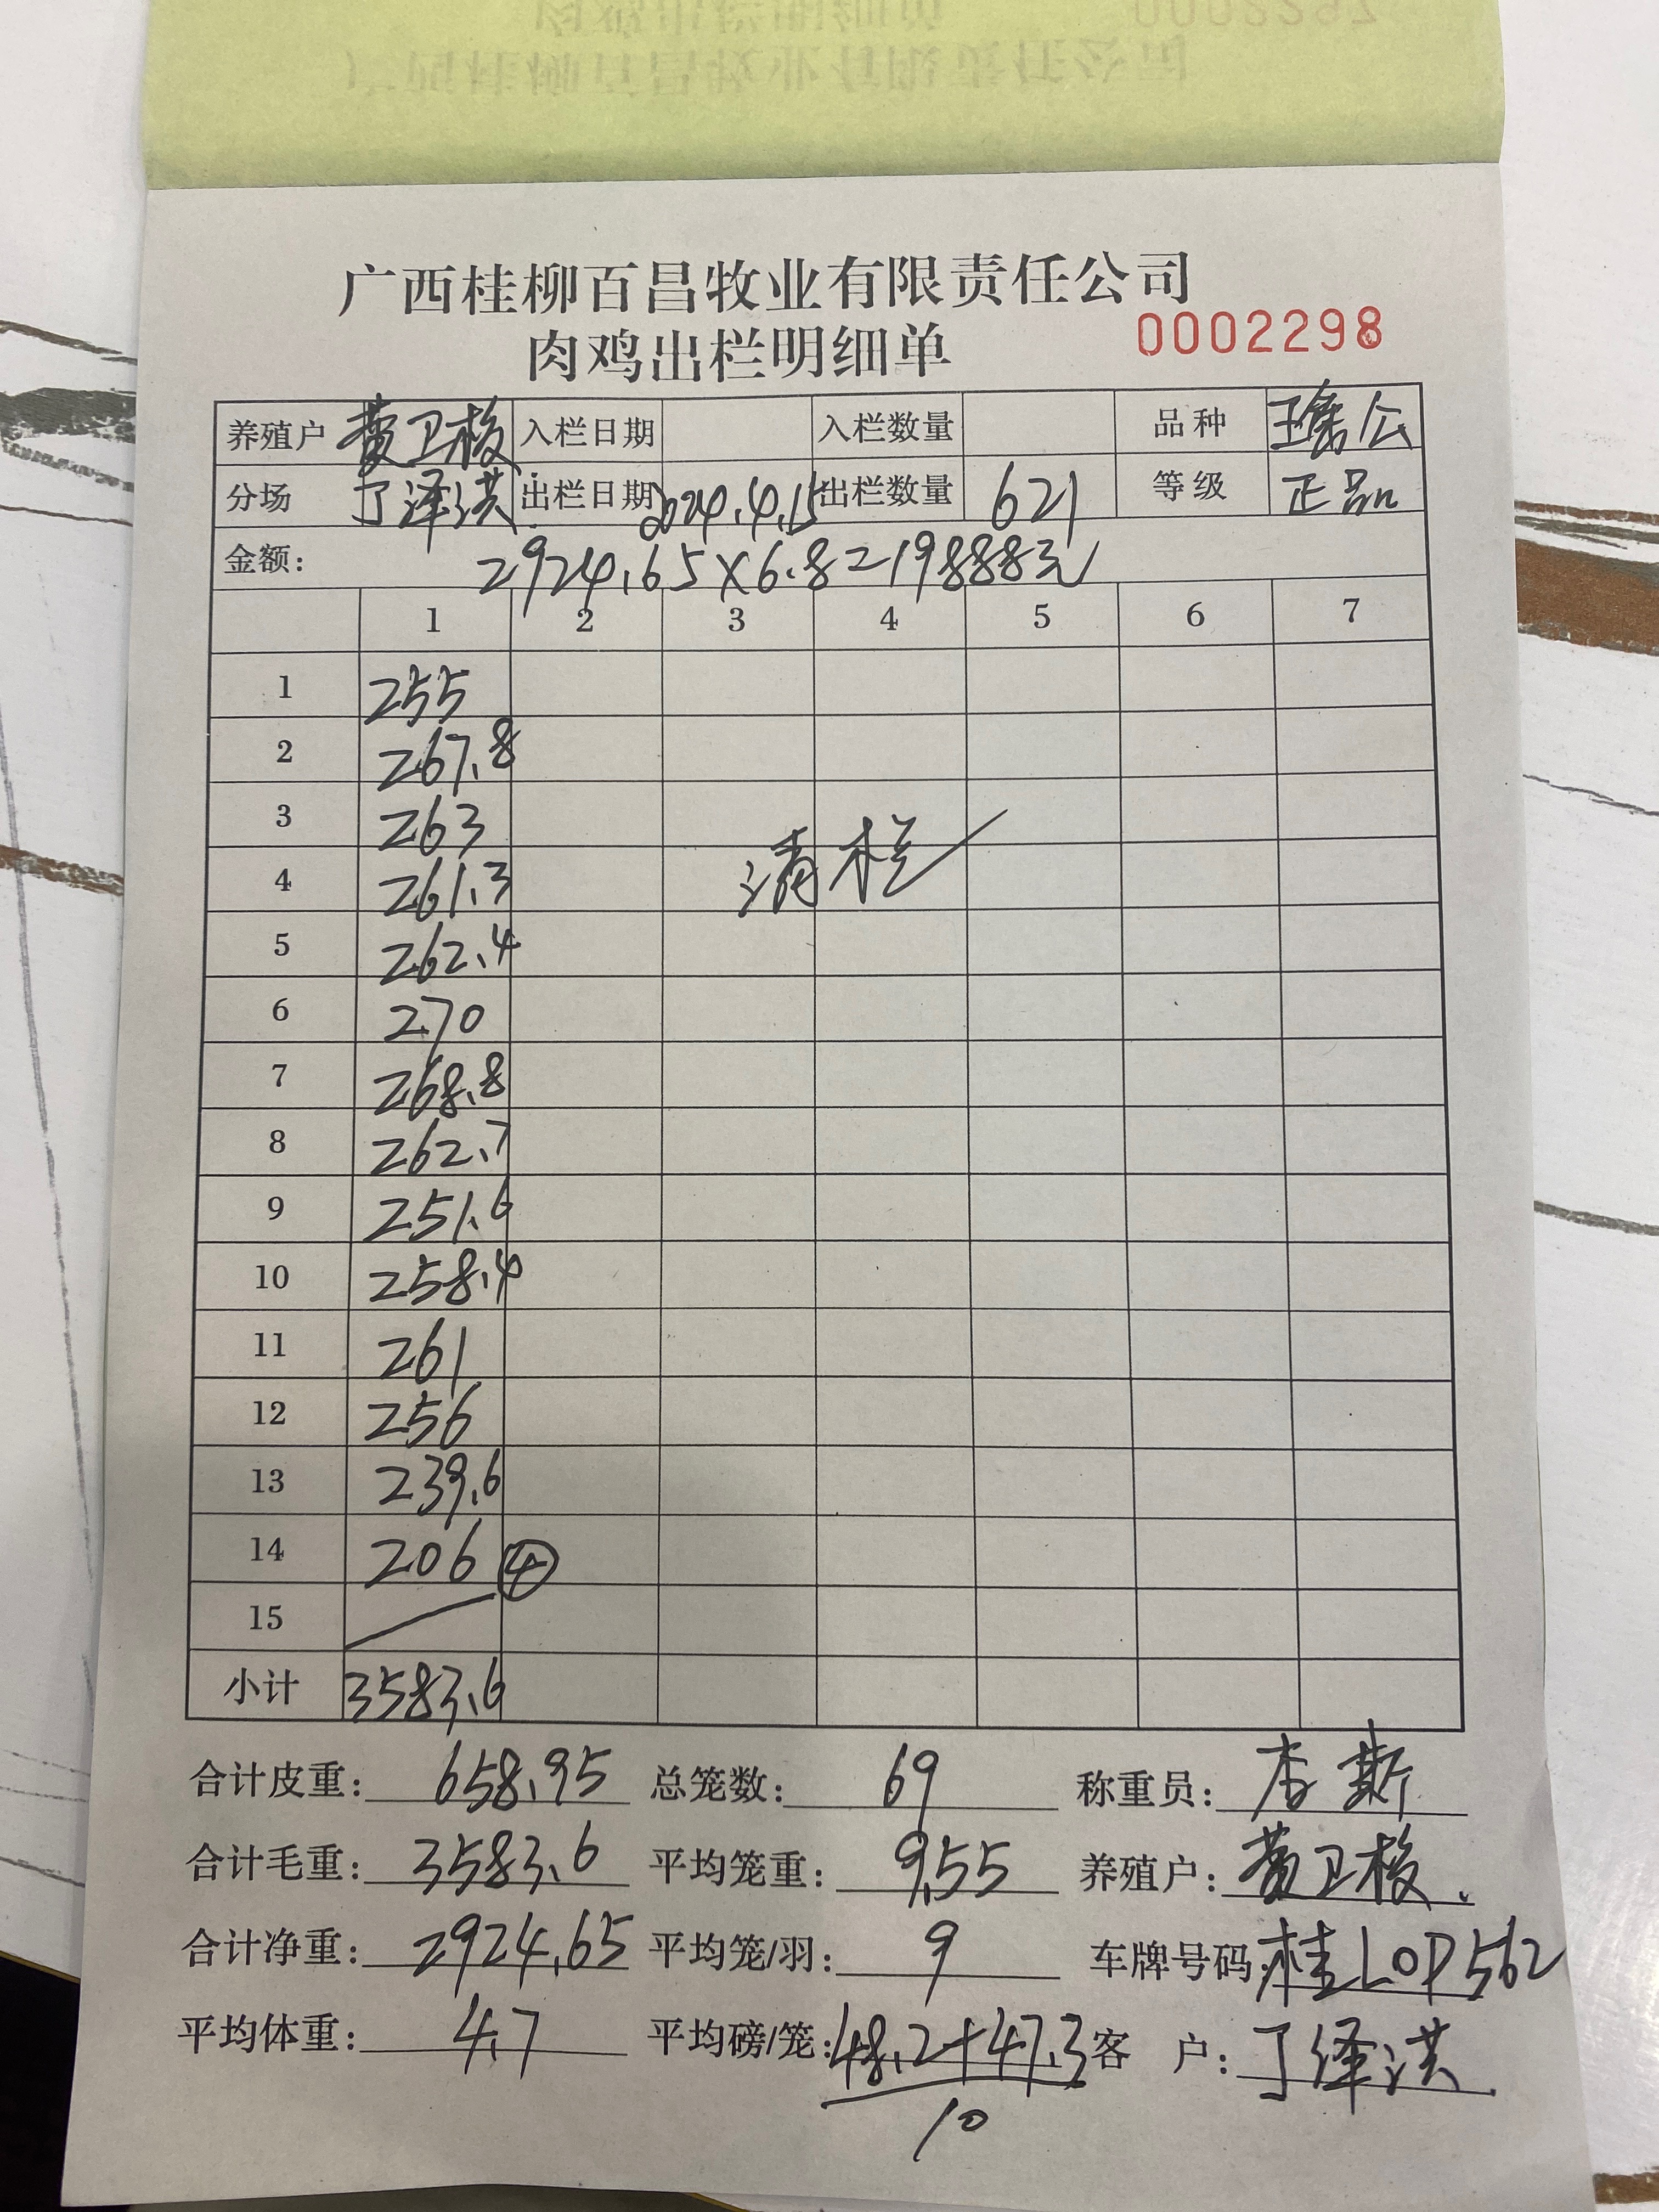 广西桂柳百昌牧业有限责任公司
肉鸡出栏明细单 0002298
养殖户 黄卫梭 入栏日期 入栏数量 品种 公
分场 丁泽洪 出栏日期 2024.4.15 出栏数量 621 等级 正品
金额: 2924.65×6.8=19888元
1 2 3 4 5 6 7
1 255
2 267.8
3 263
4 261.3
清栏
5 262.4
6 270
7 268.8
8 262.7
9 251.6
10 258.4
11 261
12 256
13 239.6
14 206 ④
15
小计 3583.6
合计皮重: 658.95 总笼数: 69 称重员: 李斯
合计毛重: 3583.6 平均笼重: 9.55 养殖户: 黄卫梭.
合计净重: 2924.65 平均笼/羽: 9 车牌号码: 桂L0P562
平均体重: 4.7 平均磅/笼: 48.2+47.3 客 户: 丁泽洪.
10